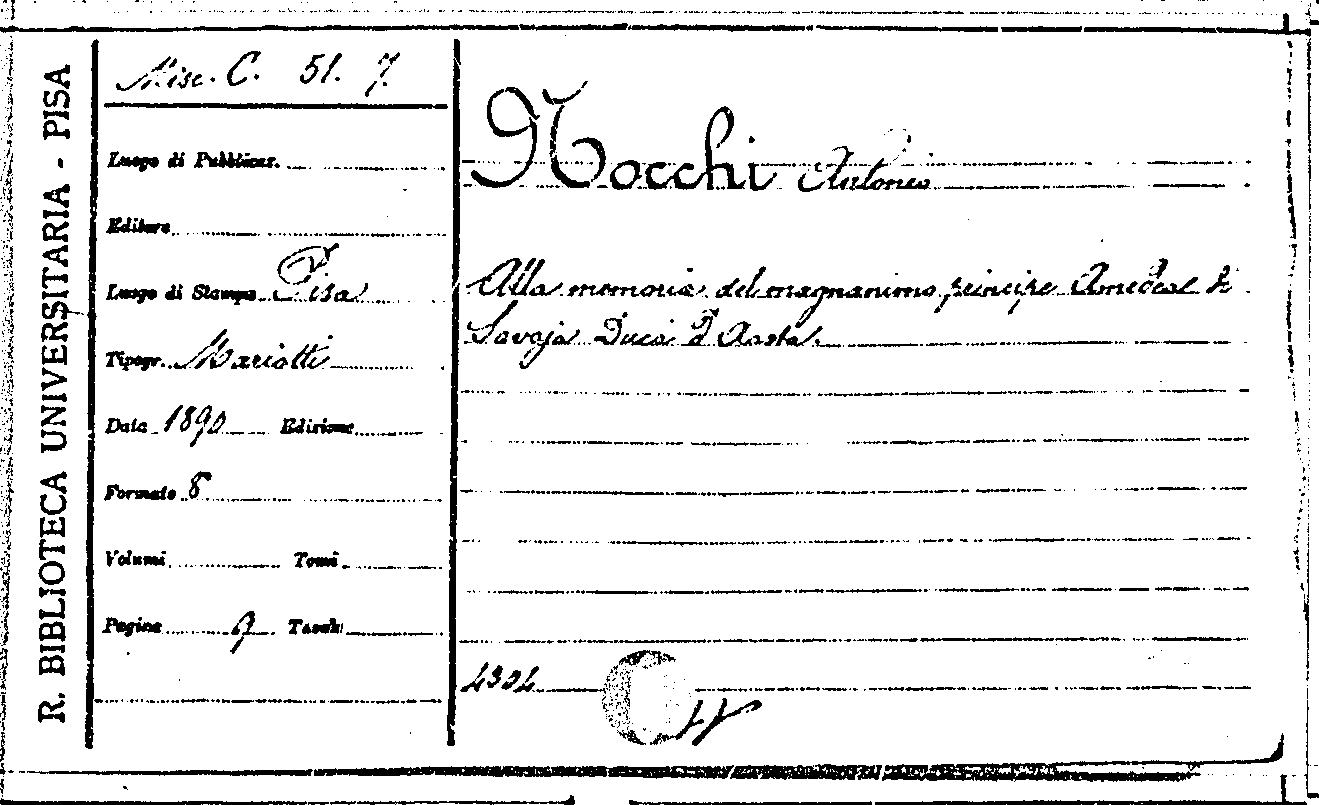 R. BIBLIOTECA UNIVERSITARIA - PISA
Misc. C. 51. 7.
Luogo di Pubblicaz.
Editore
Luogo di Stampa Pisa
Tipogr. Mariotti
Data 1890 Edizione
Formato 8
Volumi Tomi
Pagine 9 Tavole
Nocchi Antonio
Alla memoria del magnanimo principe Amedeo di
Savoja Duca d'Aosta.
4304